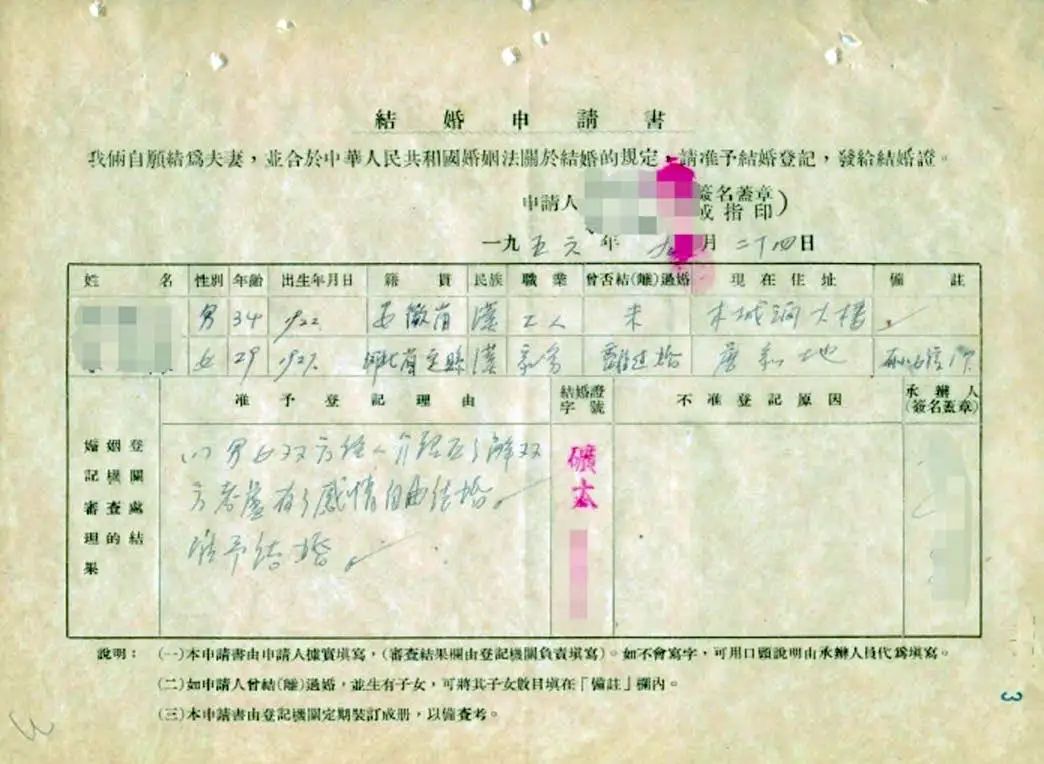 結婚申請書
我倆自願結為夫妻，並合於中華人民共和國婚姻法關於結婚的規定，請准予結婚登記，發給結婚證。
申請人 (簽名蓋章或指印)
一九五六年九月二十四日
姓名 性別 年齡 出生年月日 籍貫 民族 職業 曾否結(離)過婚 現在住址 備註
男 34 1922. 安徽省 漢 工人 未 木城澗大樓
女 29 1927. 河北省定縣 漢 家務 離過婚
准予登記理由 結婚證字號 不准登記原因 承辦人(簽名蓋章)
婚姻登記機關審查處理的結果
男女双方經人介紹互了解双
方考慮有了感情自由結婚。
准予結婚
礦太
說明：(一)本申請書由申請人據實填寫，(審查結果欄由登記機關負責填寫)。如不會寫字，可用口頭說明由承辦人員代為填寫。
(二)如申請人曾結(離)過婚，並生有子女，可將其子女數目填在「備註」欄內。
(三)本申請書由登記機關定期裝訂成册，以備查考。
3